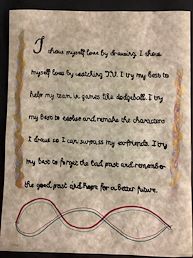 I show myself love by drawing. I show
myself love by watching TV. I try my best to
help my team in games like dodgeball. I try
my best to evolve and remake the characters
I draw so I can surpass my ex-friends. I try
my best to forget the bad past and remember
the good past and hope for a better future.